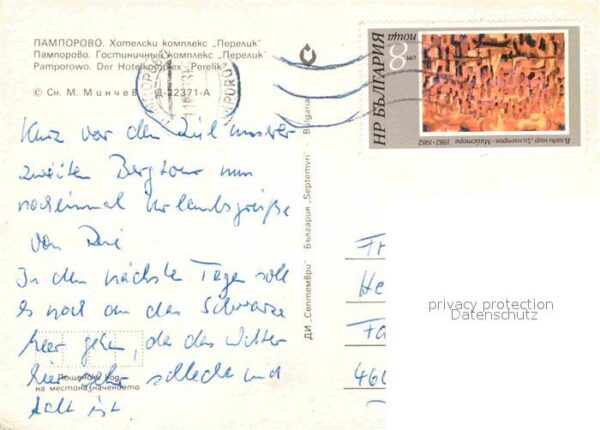 ПАМПОРОВО. Хотелски комплекс „Перелик"
Пампорово. Гостиничный комплекс „Перелик"
Pamporowo. Der Hotelkomplex „Perelik"
© Сн. М. Минчев Д-22371-А
НР БЪЛГАРИЯ
поща
8 ст
Владимир Димитров-Майстора 1882-1982
Kurz vor dem Ziel unserer
zweiten Bergtour nun
nocheinmal Urlaubsgrüße
von
In den nächsten Tagen soll
es noch an das Schwarze
Meer gehen, da das Wetter
hier sehr schlecht und
kalt ist.
Пощенски код
на местоназначението
ДИ „Септември" България „Septemvri" Bulgaria
Fr
He
Fa
460
privacy protection
Datenschutz